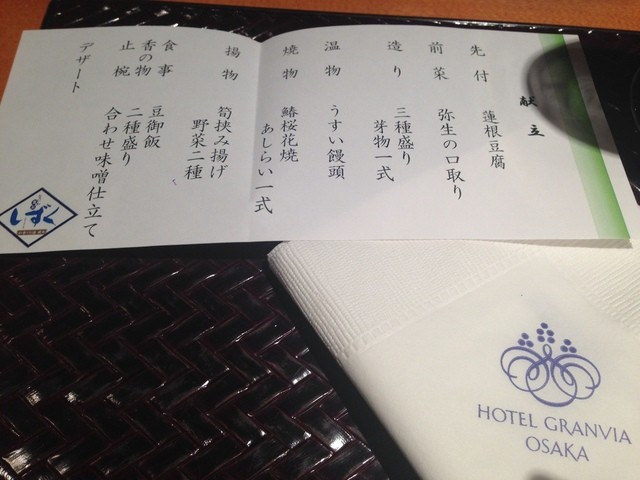 献立
先付 蓮根豆腐
前菜 弥生の口取り
造り 三種盛り
芽物一式
温物 うすい饅頭
焼物 鰆桜花焼
あしらい一式
揚物 筍挟み揚げ
野菜二種
食事 豆御飯
香の物 二種盛り
止椀 合わせ味噌仕立て
デザート
しずく
HOTEL GRANVIA
OSAKA